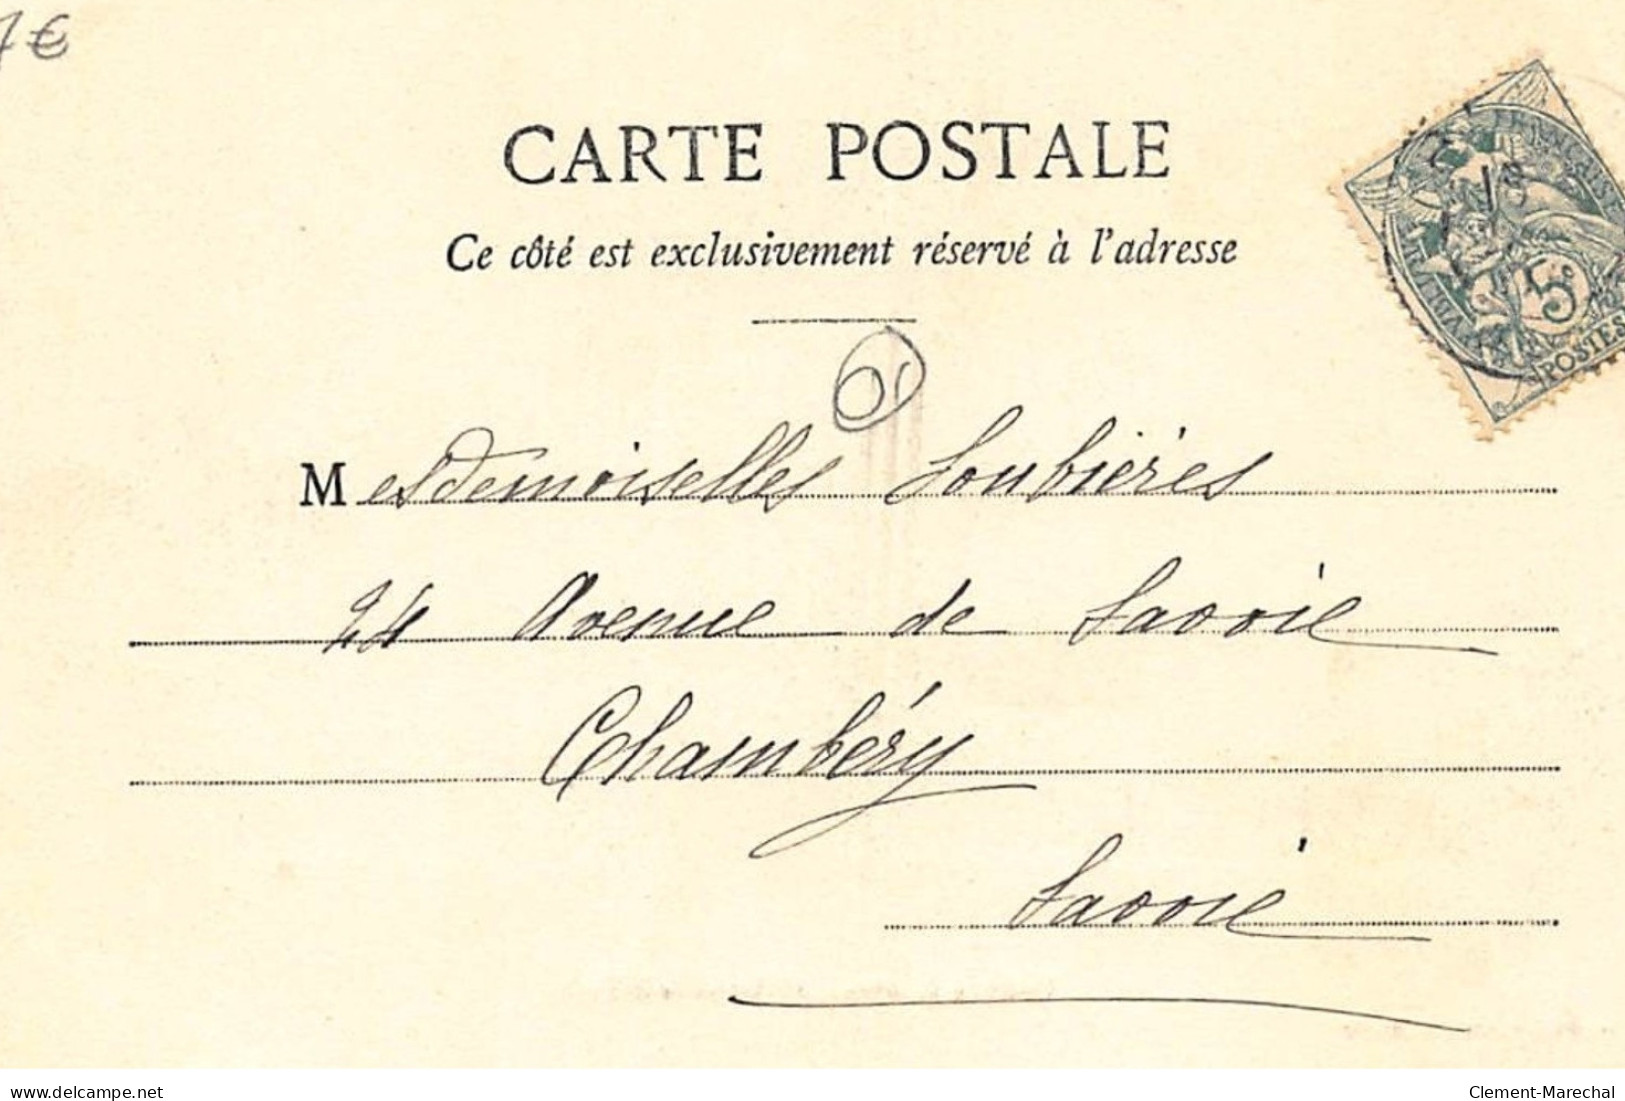 7€
CARTE POSTALE
Ce côté est exclusivement réservé à l'adresse
01
Mesdemoiselles Loubières
24 Avenue de Savoie
Chambéry
Savoie
5c
POSTES
delcampe.net
Clement-Marechal